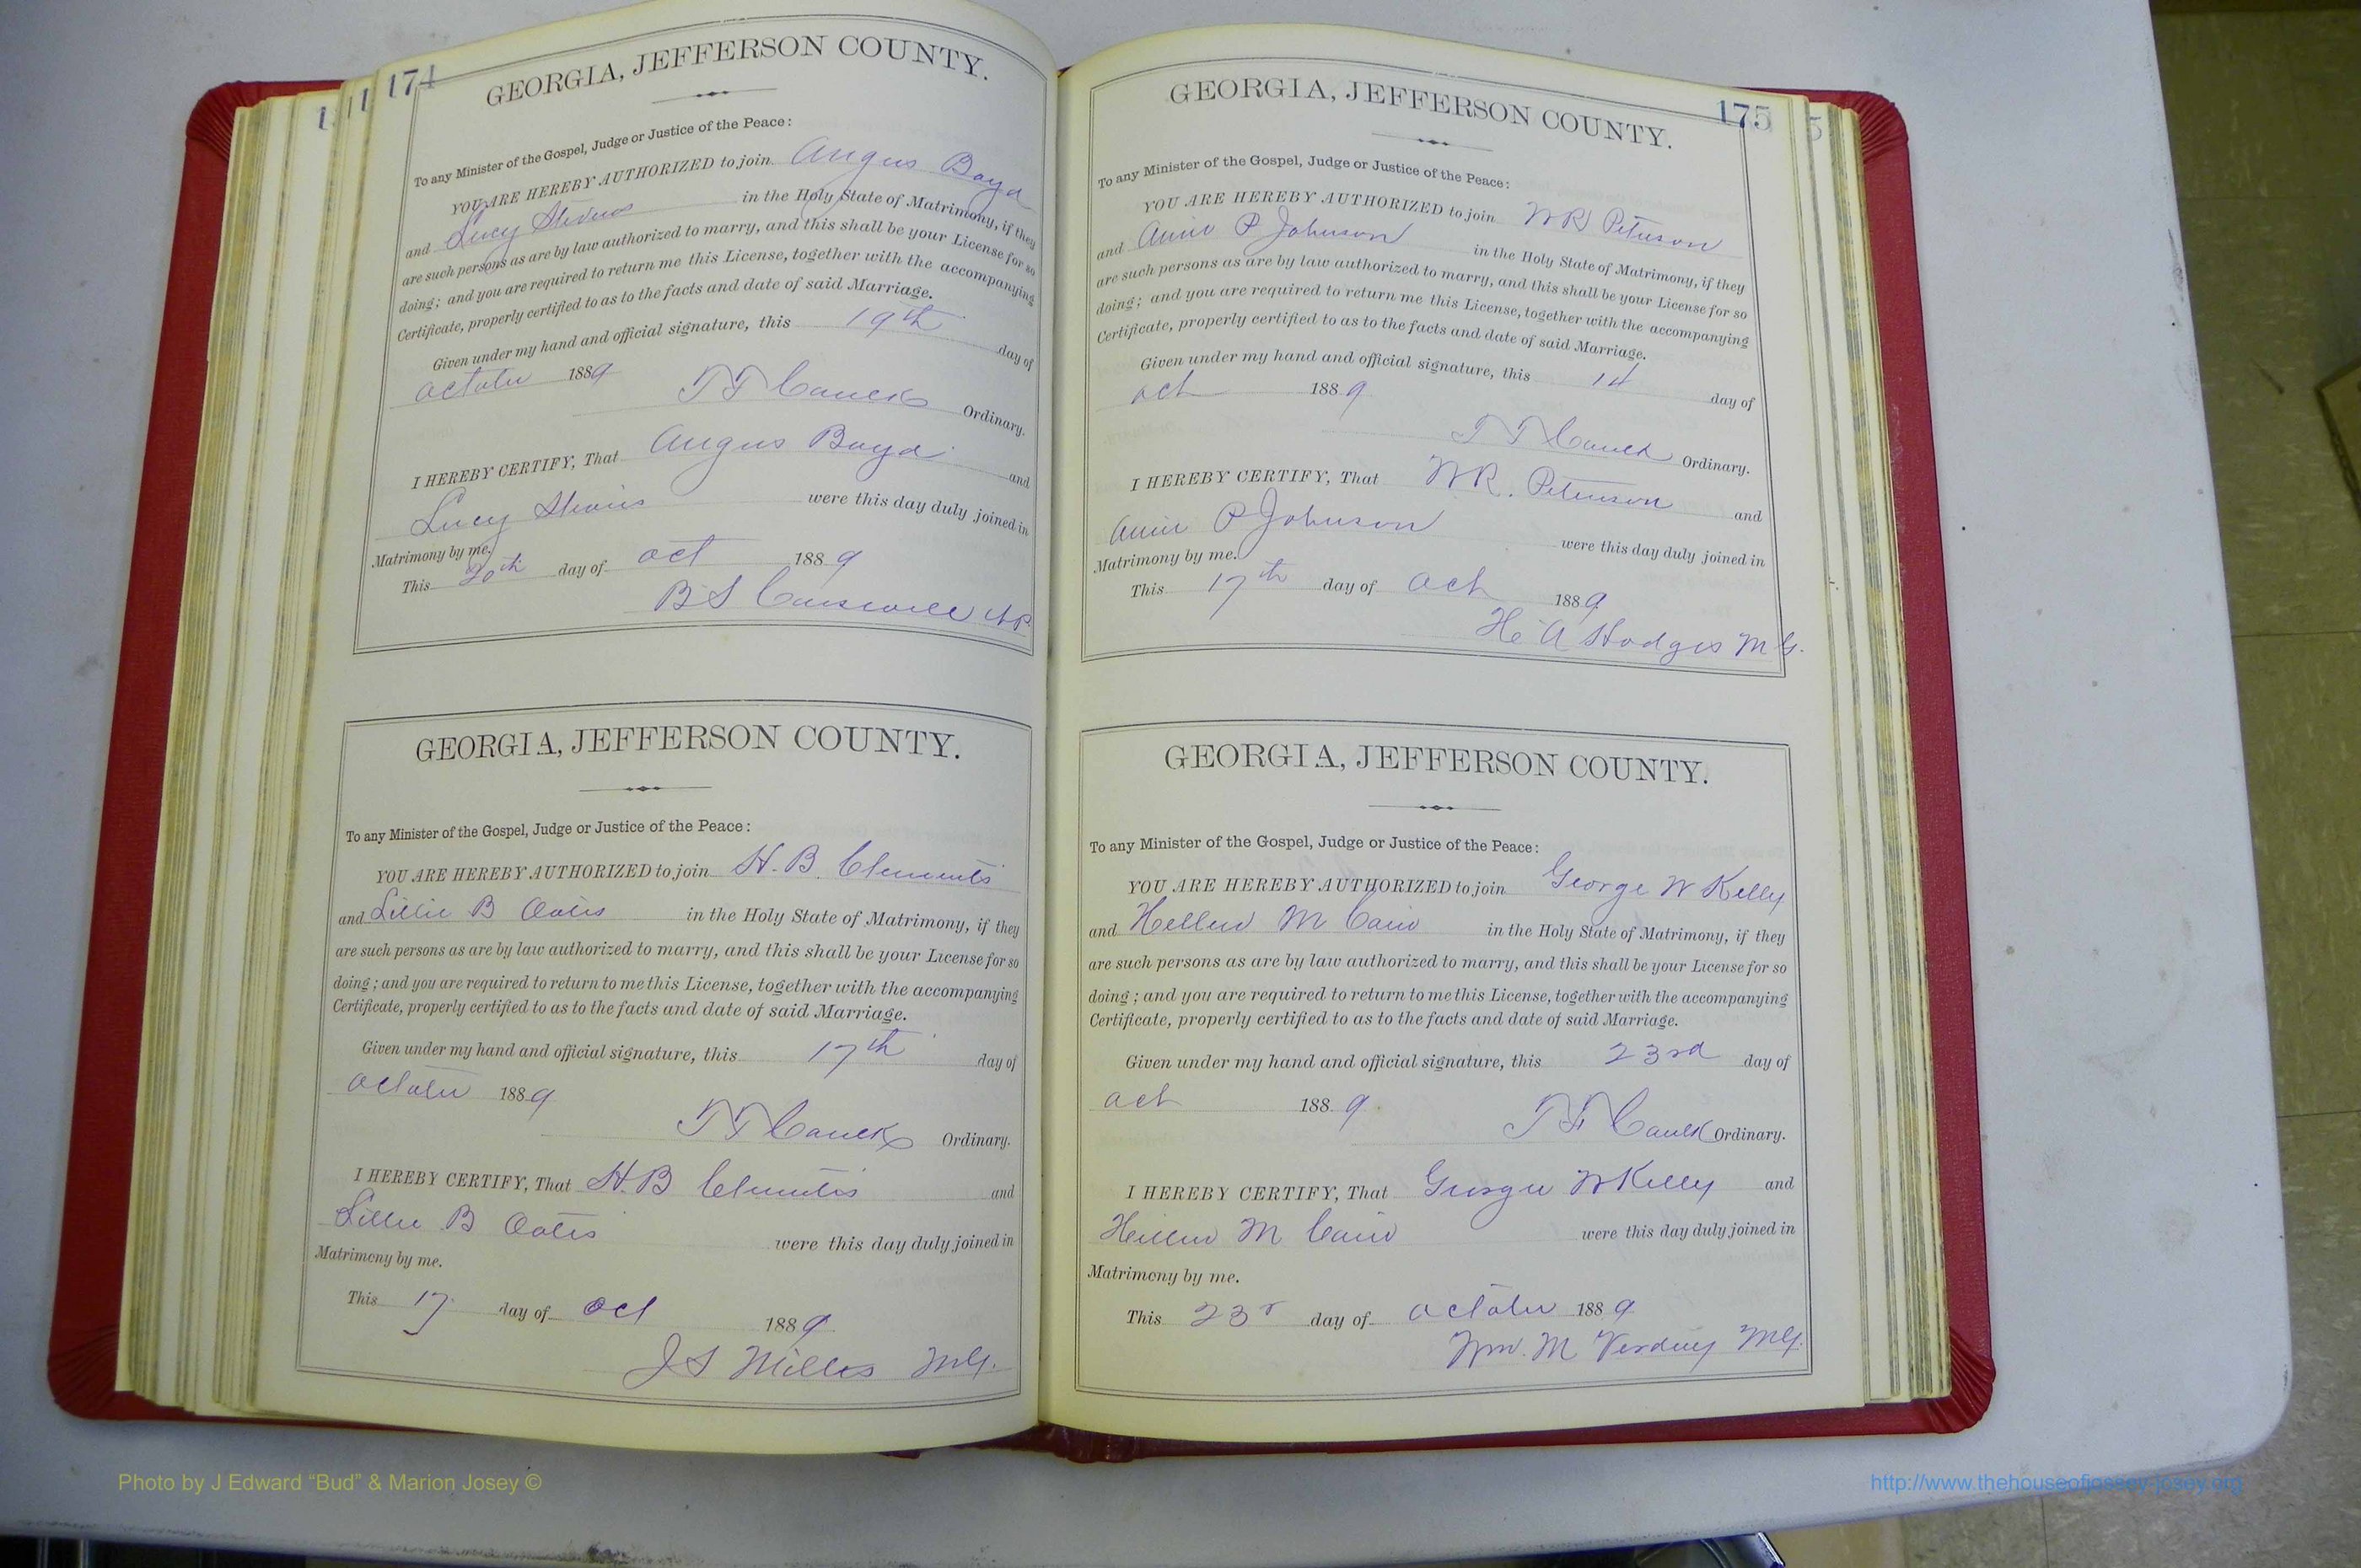 174
GEORGIA, JEFFERSON COUNTY.
To any Minister of the Gospel, Judge or Justice of the Peace:
YOU ARE HEREBY AUTHORIZED to join Angus Boyd
and Lucy Stevens in the Holy State of Matrimony, if they
are such persons as are by law authorized to marry, and this shall be your License for so
doing; and you are required to return me this License, together with the accompanying
Certificate, properly certified to as to the facts and date of said Marriage.
Given under my hand and official signature, this 19th day of
October 1889
Ordinary.
I HEREBY CERTIFY, That Angus Boyd and
Lucy Stevens were this day duly joined in
Matrimony by me.
This 20th day of Oct 1889
B S
GEORGIA, JEFFERSON COUNTY.
To any Minister of the Gospel, Judge or Justice of the Peace:
YOU ARE HEREBY AUTHORIZED to join H. B. Clements
and Lillie B Oates in the Holy State of Matrimony, if they
are such persons as are by law authorized to marry, and this shall be your License for so
doing; and you are required to return to me this License, together with the accompanying
Certificate, properly certified to as to the facts and date of said Marriage.
Given under my hand and official signature, this 17th day of
October 1889
Ordinary.
I HEREBY CERTIFY, That H. B Clements and
Lillie B Oates were this day duly joined in
Matrimony by me.
This 17 day of Oct 1889
J S MG.
175
GEORGIA, JEFFERSON COUNTY.
To any Minister of the Gospel, Judge or Justice of the Peace:
YOU ARE HEREBY AUTHORIZED to join W R Peterson
and Annie P Johnson in the Holy State of Matrimony, if they
are such persons as are by law authorized to marry, and this shall be your License for so
doing; and you are required to return me this License, together with the accompanying
Certificate, properly certified to as to the facts and date of said Marriage.
Given under my hand and official signature, this 14 day of
Oct 1889
Ordinary.
I HEREBY CERTIFY, That W R. Peterson and
Annie P Johnson were this day duly joined in
Matrimony by me.
This 17th day of Oct 1889
A Hodges MG.
GEORGIA, JEFFERSON COUNTY.
To any Minister of the Gospel, Judge or Justice of the Peace:
YOU ARE HEREBY AUTHORIZED to join George W Kelly
and M Cain in the Holy State of Matrimony, if they
are such persons as are by law authorized to marry, and this shall be your License for so
doing; and you are required to return to me this License, together with the accompanying
Certificate, properly certified to as to the facts and date of said Marriage.
Given under my hand and official signature, this 23rd day of
Oct 1889
Ordinary.
I HEREBY CERTIFY, That George W Kelly and
M Cain were this day duly joined in
Matrimony by me.
This 23r day of October 1889
Wm. M MG.
Photo by J Edward “Bud” & Marion Josey ©
http://www.thehouseofjossey-josey.org